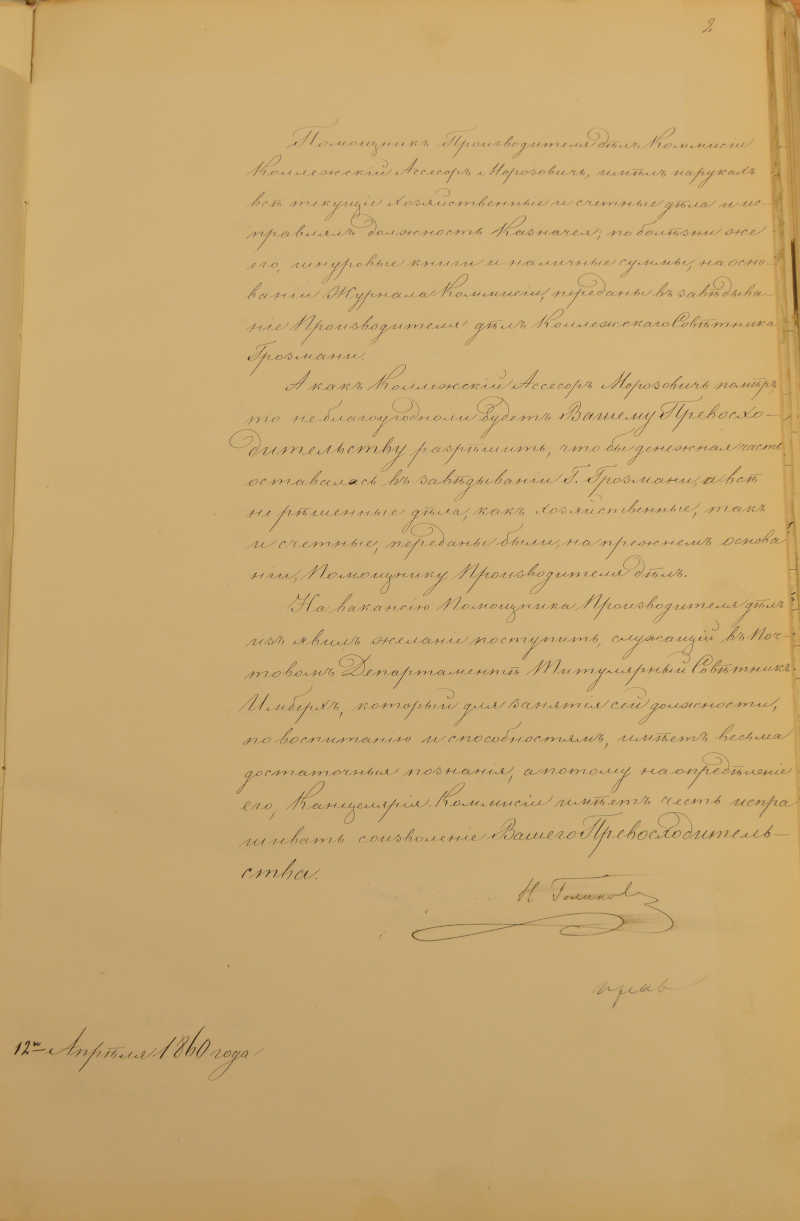 2
Помощникъ Производителя дѣлъ Коммисіи
Коллежскій Ассесоръ Морозовичъ, имѣлъ на рукахъ
всѣ текущіе хозяйственные и счетные дѣла и ис-
правлялъ должность Казначея; по болѣзни же
его, шнуровые книги и наличные суммы, на осно-
ваніи Журнала Коммисіи, переданы въ завѣдыва-
ніе Производителя дѣлъ Коллежскаго Совѣтника
Грозмани.
А какъ Коллежскій Ассесоръ Морозовичъ померъ
то не благоугодно ли будетъ Вашему Превосхо-
дительству разрѣшить, что бы денежная часть
оставалась въ завѣдываніи Г. Грозмани, а всѣ
не рѣшенные дѣла, какъ хозяйственные, такъ
и счетные, переданы были, на прежнемъ основа
ніи, Помощнику Производителя дѣлъ.
На вакансію Помощника Производителя дѣлъ
изъявилъ желаніи поступить, служащій въ Поч-
товомъ Департаментѣ Титулярный Совѣтникъ
Имберхъ, который для занятія сей должности,
по воспитанію и способностямъ, имѣетъ весьма
достаточныя познанія, а потому на опредѣленіе
его, Канцелярія Коммисіи имѣетъ честь испра
шивать соизволеніе Вашего Превосходитель-
ства.
Н Голиковъ
12го Апрѣля 1860 года